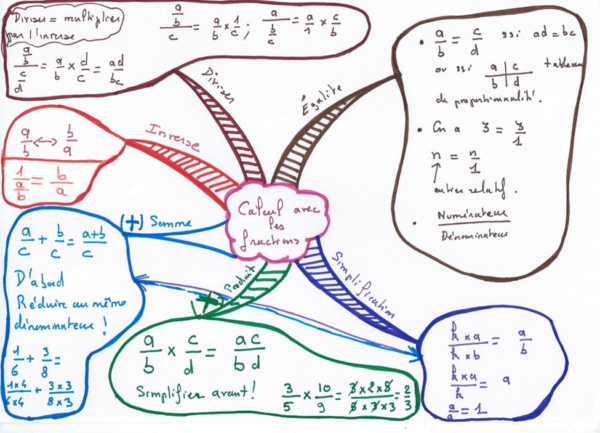 Diviser = multiplier
par l'inverse
a/b / c = a/b × 1/c ; a / b/c = a/1 × c/b
a/b / c/d = a/b × d/c = ad/bc
Diviser
Égalité
• a/b = c/d ssi ad = bc
ou ssi a | c / b | d tableau
de proportionnalité.
• On a 3 = 3/1
n = n/1
↑
entier relatif.
• Numérateur
Dénominateur
Inverse
a/b ↔ b/a
1 / a/b = b/a
Calcul avec
les
fractions
(+) Somme
a/c + b/c = a+b/c
D'abord
Réduire au même
dénominateur !
1/6 + 3/8 =
1×4/6×4 + 3×3/8×3
× Produit
a/b × c/d = ac/bd
Simplifier avant !
3/5 × 10/9 = 3×2×5/5×3×3 = 2/3
Simplification
k×a/k×b = a/b
k×a/k = a
a/a = 1